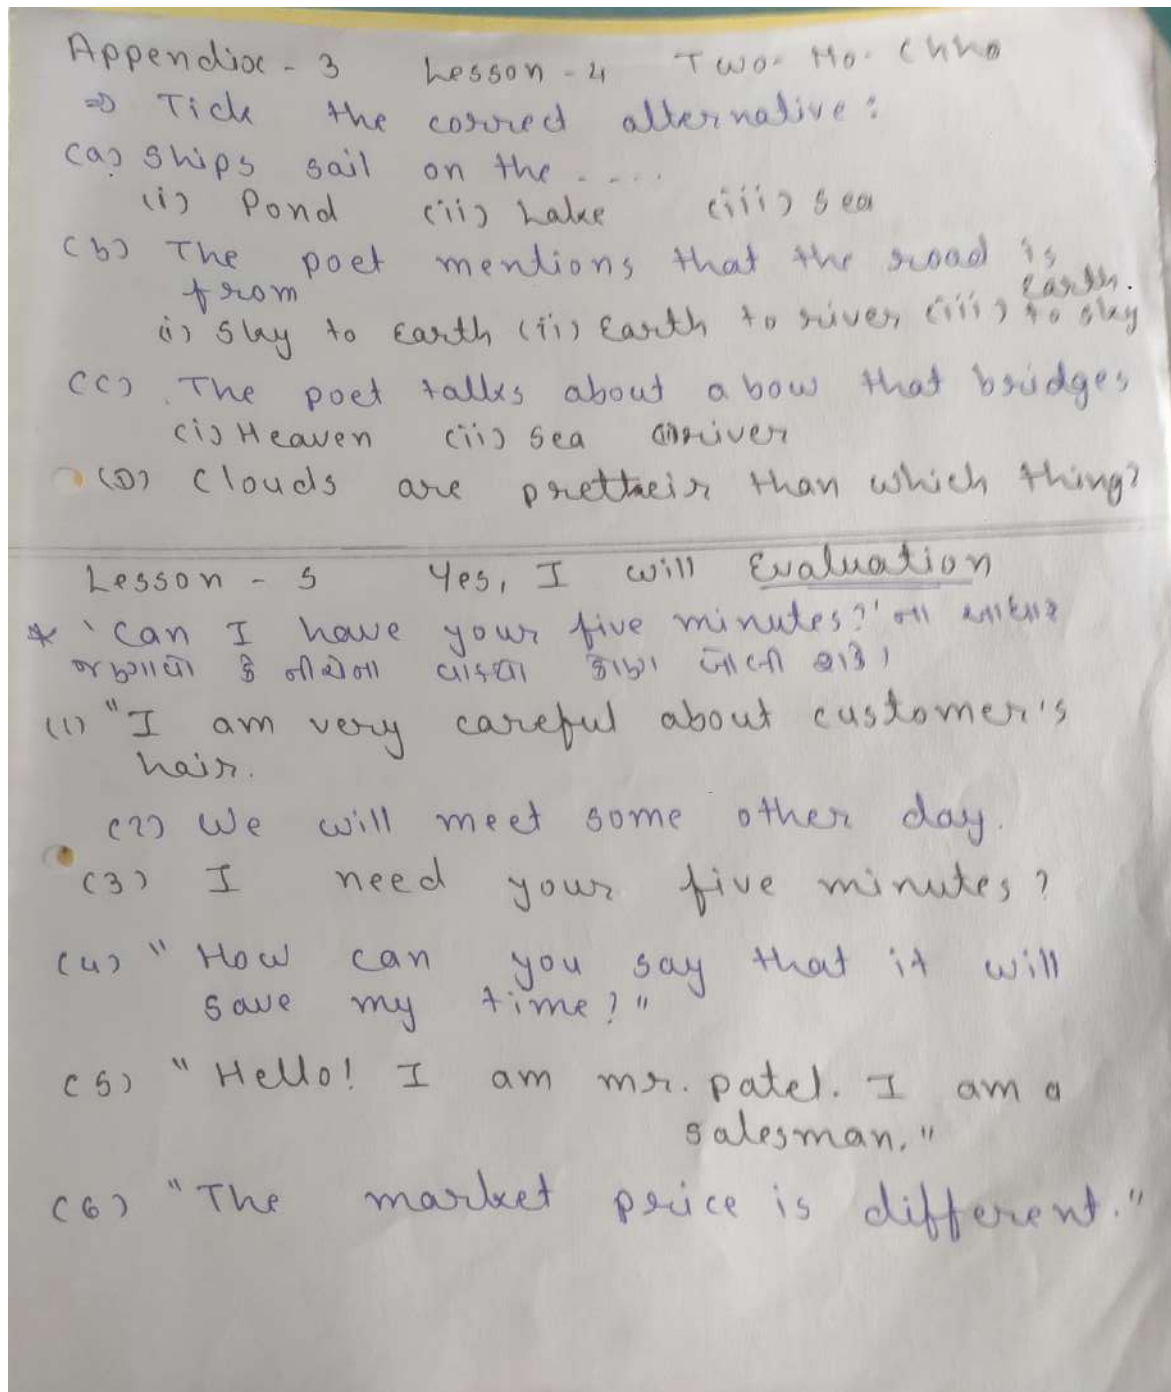 Appendix - 3 Lesson - 4 Two- Mo- Chho
⇒ Tick the correct alternative:
(a) Ships sail on the ....
(i) Pond (ii) Lake (iii) Sea
(b) The poet mentions that the road is
from
(i) Sky to Earth (ii) Earth to river (iii) Earth. to sky
(C) The poet talks about a bow that bridges
(i) Heaven (ii) Sea (iii) river
(D) Clouds are prettheir than which thing?
Lesson - 5 Yes, I will Evaluation
* 'Can I have your five minutes?' ના આધારે
જણાવો કે નીચેના વાક્યો કોણ બોલી શકે।
(1) "I am very careful about customer's
hair.
(2) We will meet some other day.
(3) I need your five minutes?
(4) "How can you say that it will
save my time?"
(5) "Hello! I am mr. patel. I am a
salesman."
(6) "The market price is different."